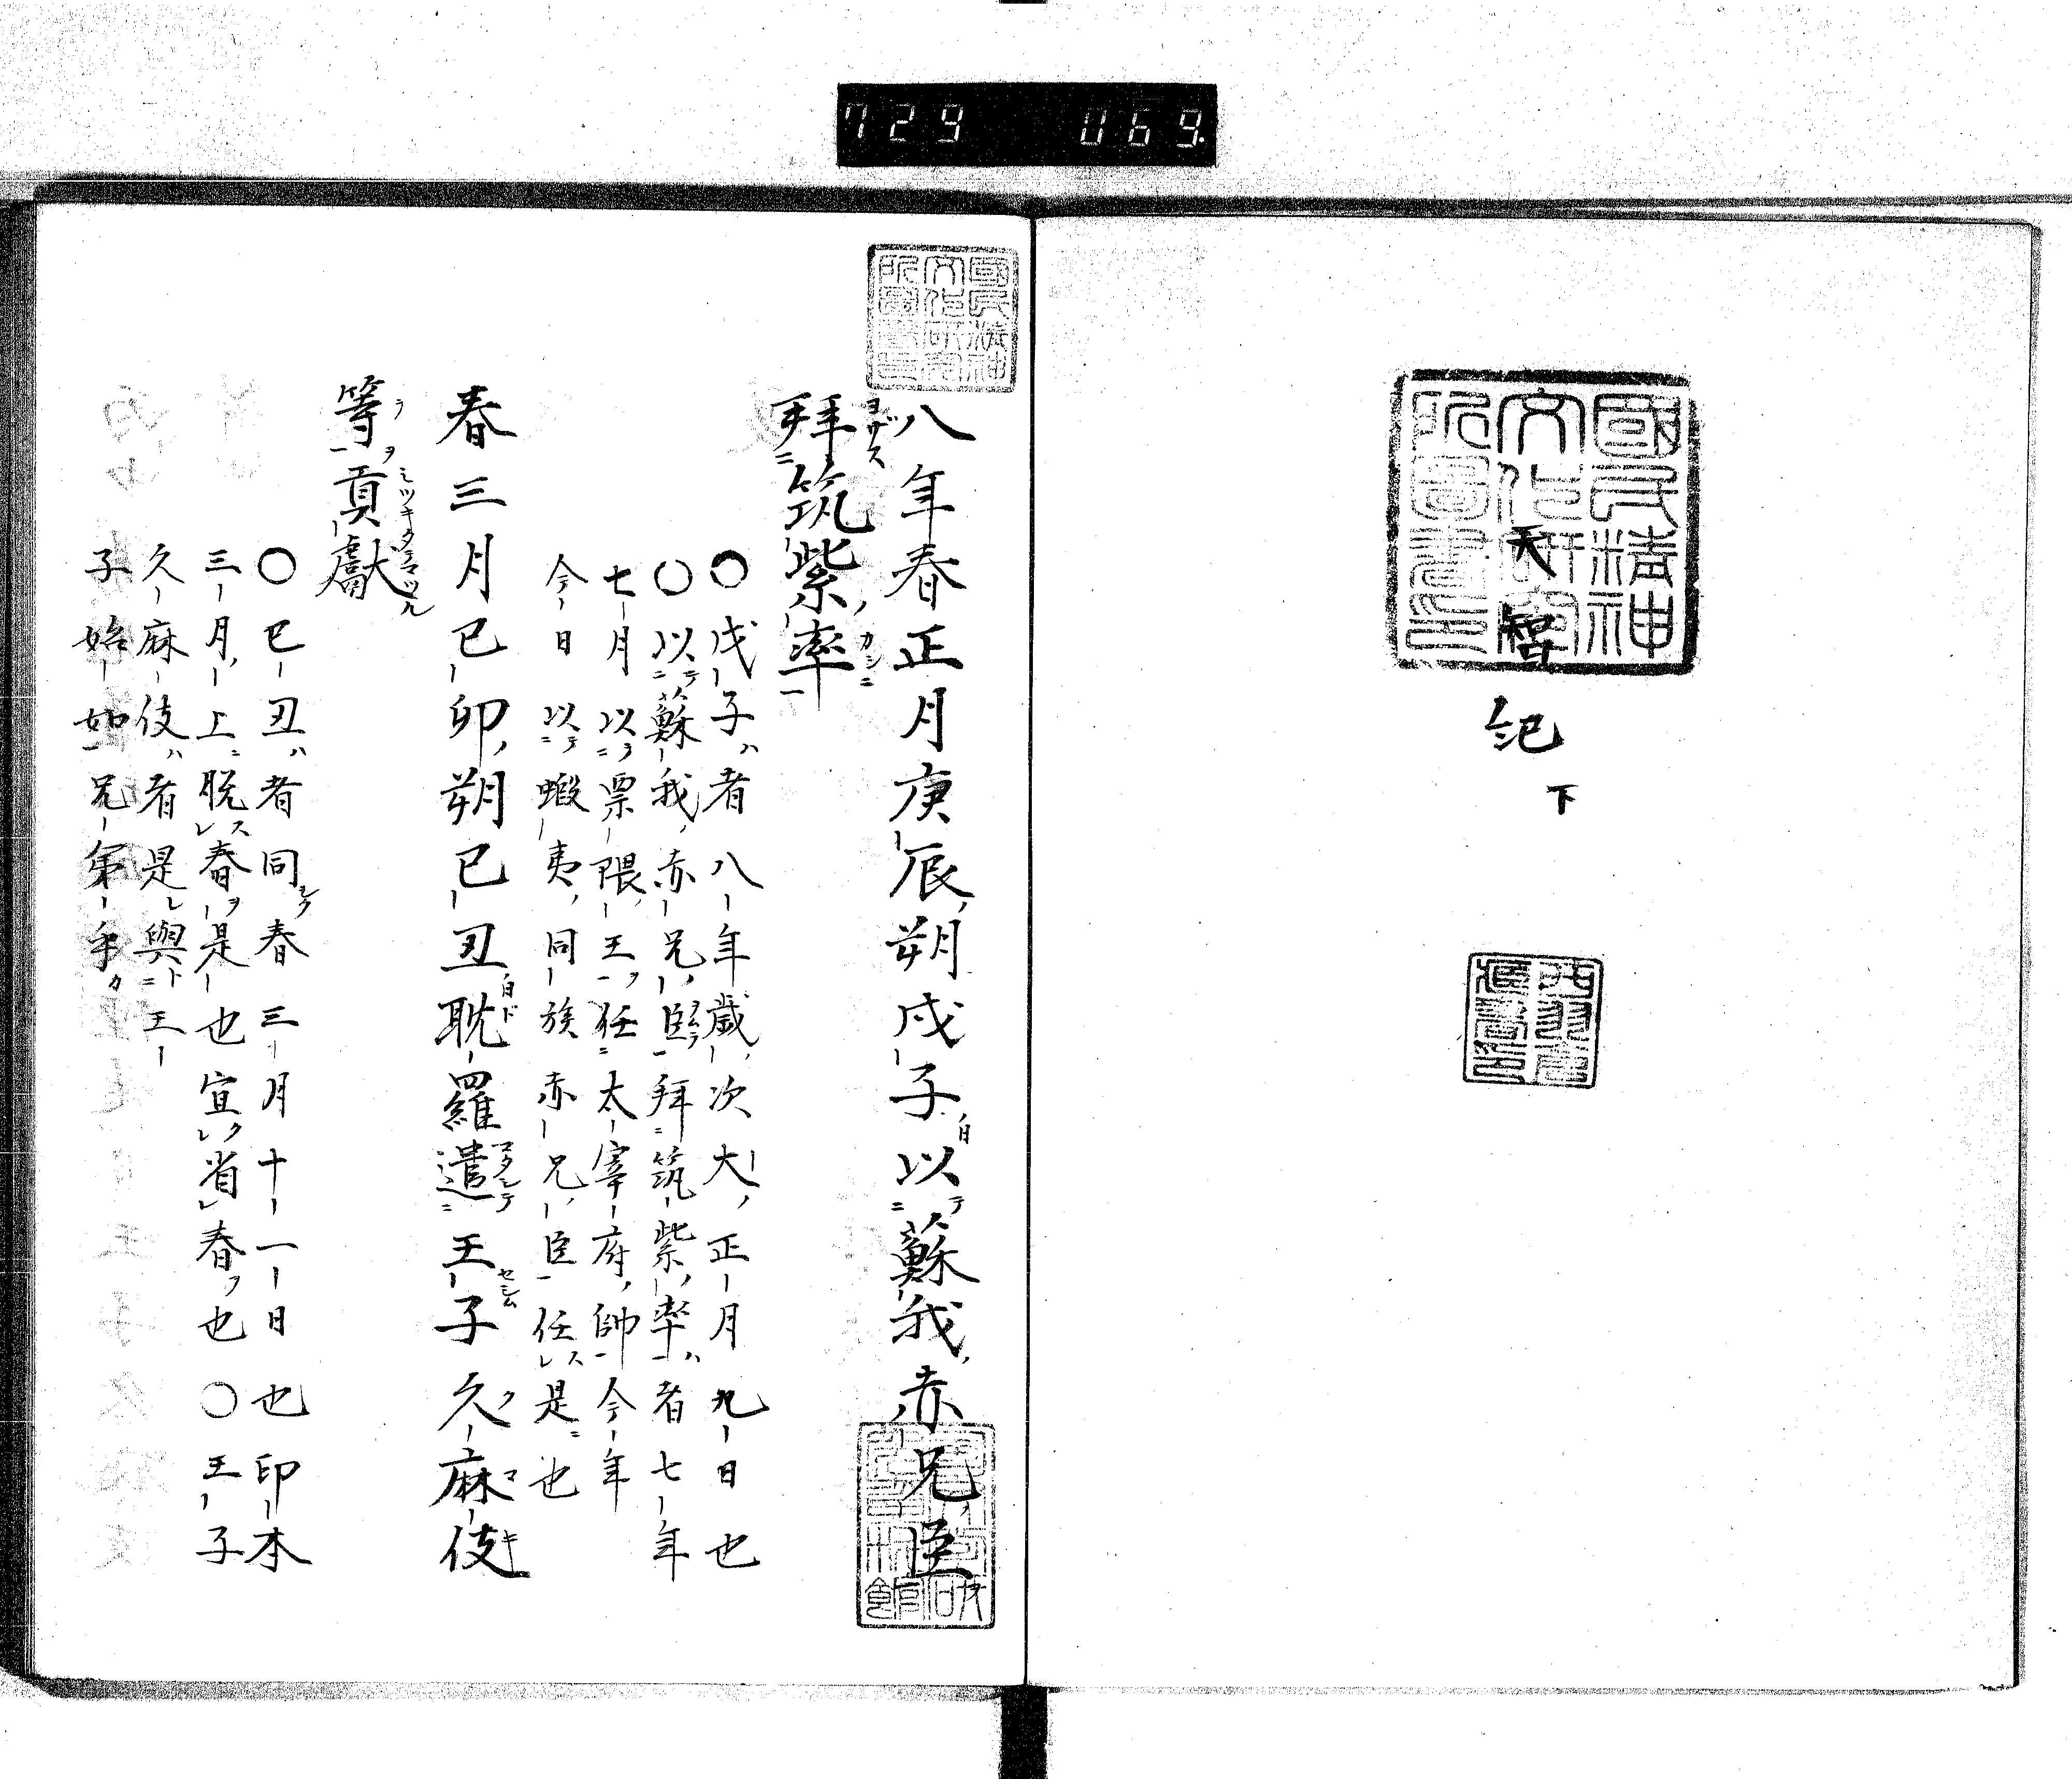 729 069
國民精神
文化研究
所圖書印
天智紀下
國民精神
文化研究
所圖書印
八年春正月庚辰朔戊子以蘇我赤兄臣
拜筑紫率
〇戊子者八年歳次大正月九日也
〇以蘇我赤兄臣拜筑紫率者七年
七月以栗隈王任太宰府帥今年
今日以蝦夷同族赤兄臣任是也
春三月己卯朔己丑耽羅遣王子久麻伎
等貢獻
〇己丑者同春三月十一日也印本
三月上脱春是也宜省春也〇王子
久麻伎者是與王
子始如兄弟乎